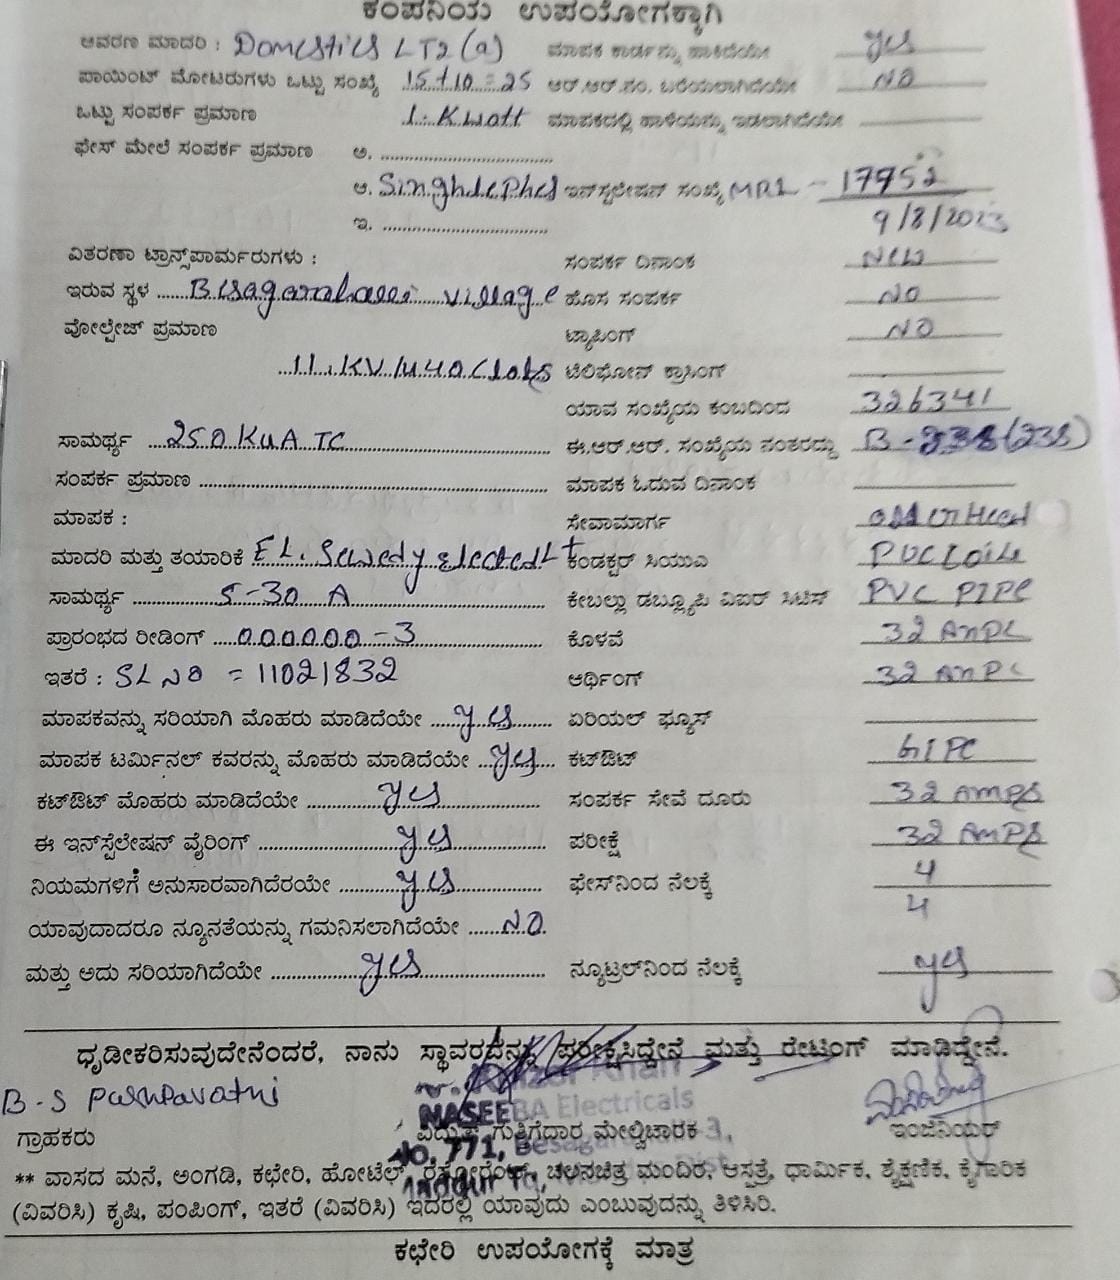 ಕಂಪನಿಯ ಉಪಯೋಗಕ್ಕಾಗಿ
ಆವರಣ ಮಾದರಿ : Domestics LT2 (a) ಮಾಪಕ ಕಾರ್ಡನ್ನು ಹಾಕಿದೆಯೇ yes
ಪಾಯಿಂಟ್ ಮೋಟರುಗಳು ಒಟ್ಟು ಸಂಖ್ಯೆ 15+10=25 ಆರ್.ಆರ್.ನಂ. ಬರೆಯಲಾಗಿದೆಯೇ NO
ಒಟ್ಟು ಸಂಪರ್ಕ ಪ್ರಮಾಣ 1. Kwatt ಮಾಪಕದಲ್ಲಿ ಹಾಳೆಯನ್ನು ಇಡಲಾಗಿದೆಯೇ
ಫೇಸ್ ಮೇಲೆ ಸಂಪರ್ಕ ಪ್ರಮಾಣ ಅ.
ಆ. ಇನ್‌ಸ್ಟಲೇಷನ್ ಸಂಖ್ಯೆ 17952
ಇ. 9/8/2023
ವಿತರಣಾ ಟ್ರಾನ್ಸ್‌ಪಾರ್ಮರುಗಳು : ಸಂಪರ್ಕ ದಿನಾಂಕ New
ಇರುವ ಸ್ಥಳ village ಹೊಸ ಸಂಪರ್ಕ NO
ವೋಲ್ಟೇಜ್ ಪ್ರಮಾಣ ಟ್ಯಾಪಿಂಗ್ NO
11.KV ಟೆಲಿಫೋನ್ ಕ್ರಾಸಿಂಗ್
ಯಾವ ಸಂಖ್ಯೆಯ ಕಂಬದಿಂದ 326341
ಸಾಮರ್ಥ್ಯ 250 KVA TC ಈ.ಆರ್.ಆರ್. ಸಂಖ್ಯೆಯ ನಂತರದ್ದು
ಸಂಪರ್ಕ ಪ್ರಮಾಣ ಮಾಪಕ ಓದುವ ದಿನಾಂಕ
ಮಾಪಕ : ಸೇವಾಮಾರ್ಗ
ಮಾದರಿ ಮತ್ತು ತಯಾರಿಕೆ ಕಂಡಕ್ಟರ್ ಸಿಯುಎ PVC
ಸಾಮರ್ಥ್ಯ 5-30 A ಕೇಬಲ್ಲು ಡಬ್ಲ್ಯೂಪಿ ವಿಐಆರ್ ಸಿಟಿಸ್ PVC PIPE
ಪ್ರಾರಂಭದ ರೀಡಿಂಗ್ 000000-3 ಕೊಳವೆ 32
ಇತರೆ : SL NO = 11021832 ಆರ್ಥಿಂಗ್ 32
ಮಾಪಕವನ್ನು ಸರಿಯಾಗಿ ಮೊಹರು ಮಾಡಿದೆಯೇ yes ಏರಿಯಲ್ ಫ್ಯೂಸ್
ಮಾಪಕ ಟರ್ಮಿನಲ್ ಕವರನ್ನು ಮೊಹರು ಮಾಡಿದೆಯೇ yes ಕಟ್‌ಔಟ್
ಕಟ್‌ಔಟ್ ಮೊಹರು ಮಾಡಿದೆಯೇ yes ಸಂಪರ್ಕ ಸೇವೆ ದೂರು 32 AMPS
ಈ ಇನ್‌ಸ್ಟೆಲೇಷನ್ ವೈರಿಂಗ್ yes ಪರೀಕ್ಷೆ 32 AMPS
ನಿಯಮಗಳಿಗೆ ಅನುಸಾರವಾಗಿದೆರಯೇ yes ಫೇಸ್‌ನಿಂದ ನೆಲಕ್ಕೆ 4
ಯಾವುದಾದರೂ ನ್ಯೂನತೆಯನ್ನು ಗಮನಿಸಲಾಗಿದೆಯೇ NO. 4
ಮತ್ತು ಅದು ಸರಿಯಾಗಿದೆಯೇ yes ನ್ಯೂಟ್ರಲ್‌ನಿಂದ ನೆಲಕ್ಕೆ yes
ಧೃಡೀಕರಿಸುವುದೇನೆಂದರೆ, ನಾನು ಸ್ಥಾವರದನ್ನು ಪರೀಕ್ಷಿಸಿದ್ದೇನೆ ಮತ್ತು ರೇಟಿಂಗ್ ಮಾಡಿದ್ದೇನೆ.
Khan
B-S
NASEEBA Electricals
ಗ್ರಾಹಕರು ವಿದ್ಯುತ್ ಗುತ್ತಿಗೆದಾರ ಮೇಲ್ವಿಚಾರಕ ಇಂಜಿನಿಯರ್
No. 771,
** ವಾಸದ ಮನೆ, ಅಂಗಡಿ, ಕಛೇರಿ, ಹೋಟೆಲ್, ರೆಸ್ಟೋರೆಂಟ್, ಚಲನಚಿತ್ರ ಮಂದಿರ, ಆಸ್ಪತ್ರೆ, ಧಾರ್ಮಿಕ, ಶೈಕ್ಷಣಿಕ, ಕೈಗಾರಿಕ
Maddur Tq,
(ವಿವರಿಸಿ) ಕೃಷಿ, ಪಂಪಿಂಗ್, ಇತರೆ (ವಿವರಿಸಿ) ಇದರಲ್ಲಿ ಯಾವುದು ಎಂಬುವುದನ್ನು ತಿಳಿಸಿರಿ.
ಕಛೇರಿ ಉಪಯೋಗಕ್ಕೆ ಮಾತ್ರ